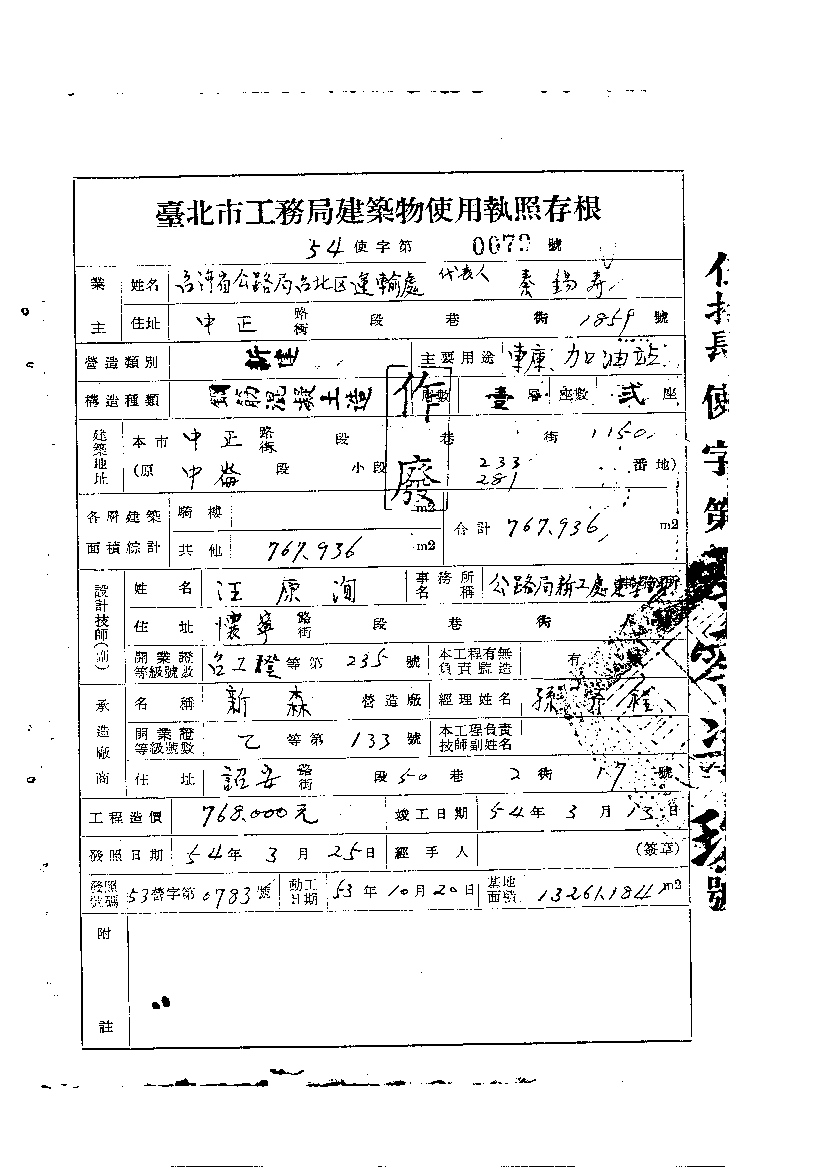 臺北市工務局建築物使用執照存根
54 使字第 0079 號
業主 姓名 台灣省公路局台北区運輸處 代表人 秦錫壽
住址 中正 路街 段 巷 街 1859 號
營造類別 新建 主要用途 車庫 加油站
構造種類 鋼筋混凝土造 層數 壹層 座數 弍座
作廢
建築地址 本市 中正 路街 段 巷 街 1150
(原 中崙 段 小段 233 281 番地)
各層建築面積綜計 騎樓 m2 合計 767.936 m2
其他 767.936 m2
設計技師(副) 姓名 汪原洵 事務所名稱 公路局新工處
住址 懷寧 路街 段 巷 街 號
開業證等級號數 台工證 等第 235 號 本工程有無負責監造 有
承造廠商 名稱 新森 營造廠 經理姓名 孫
開業證等級號數 乙 等第 133 號 本工程負責技師副姓名
住址 詔安 路街 段 50 巷 2 街 17 號
工程造價 768.000元 竣工日期 54年 3月 13日
發照日期 54年 3月 25日 經手人 (簽章)
發照號碼 53營字第 0783 號 動工日期 53年 10月 20日 基地面積 13261.184 m2
附註
使字第
號